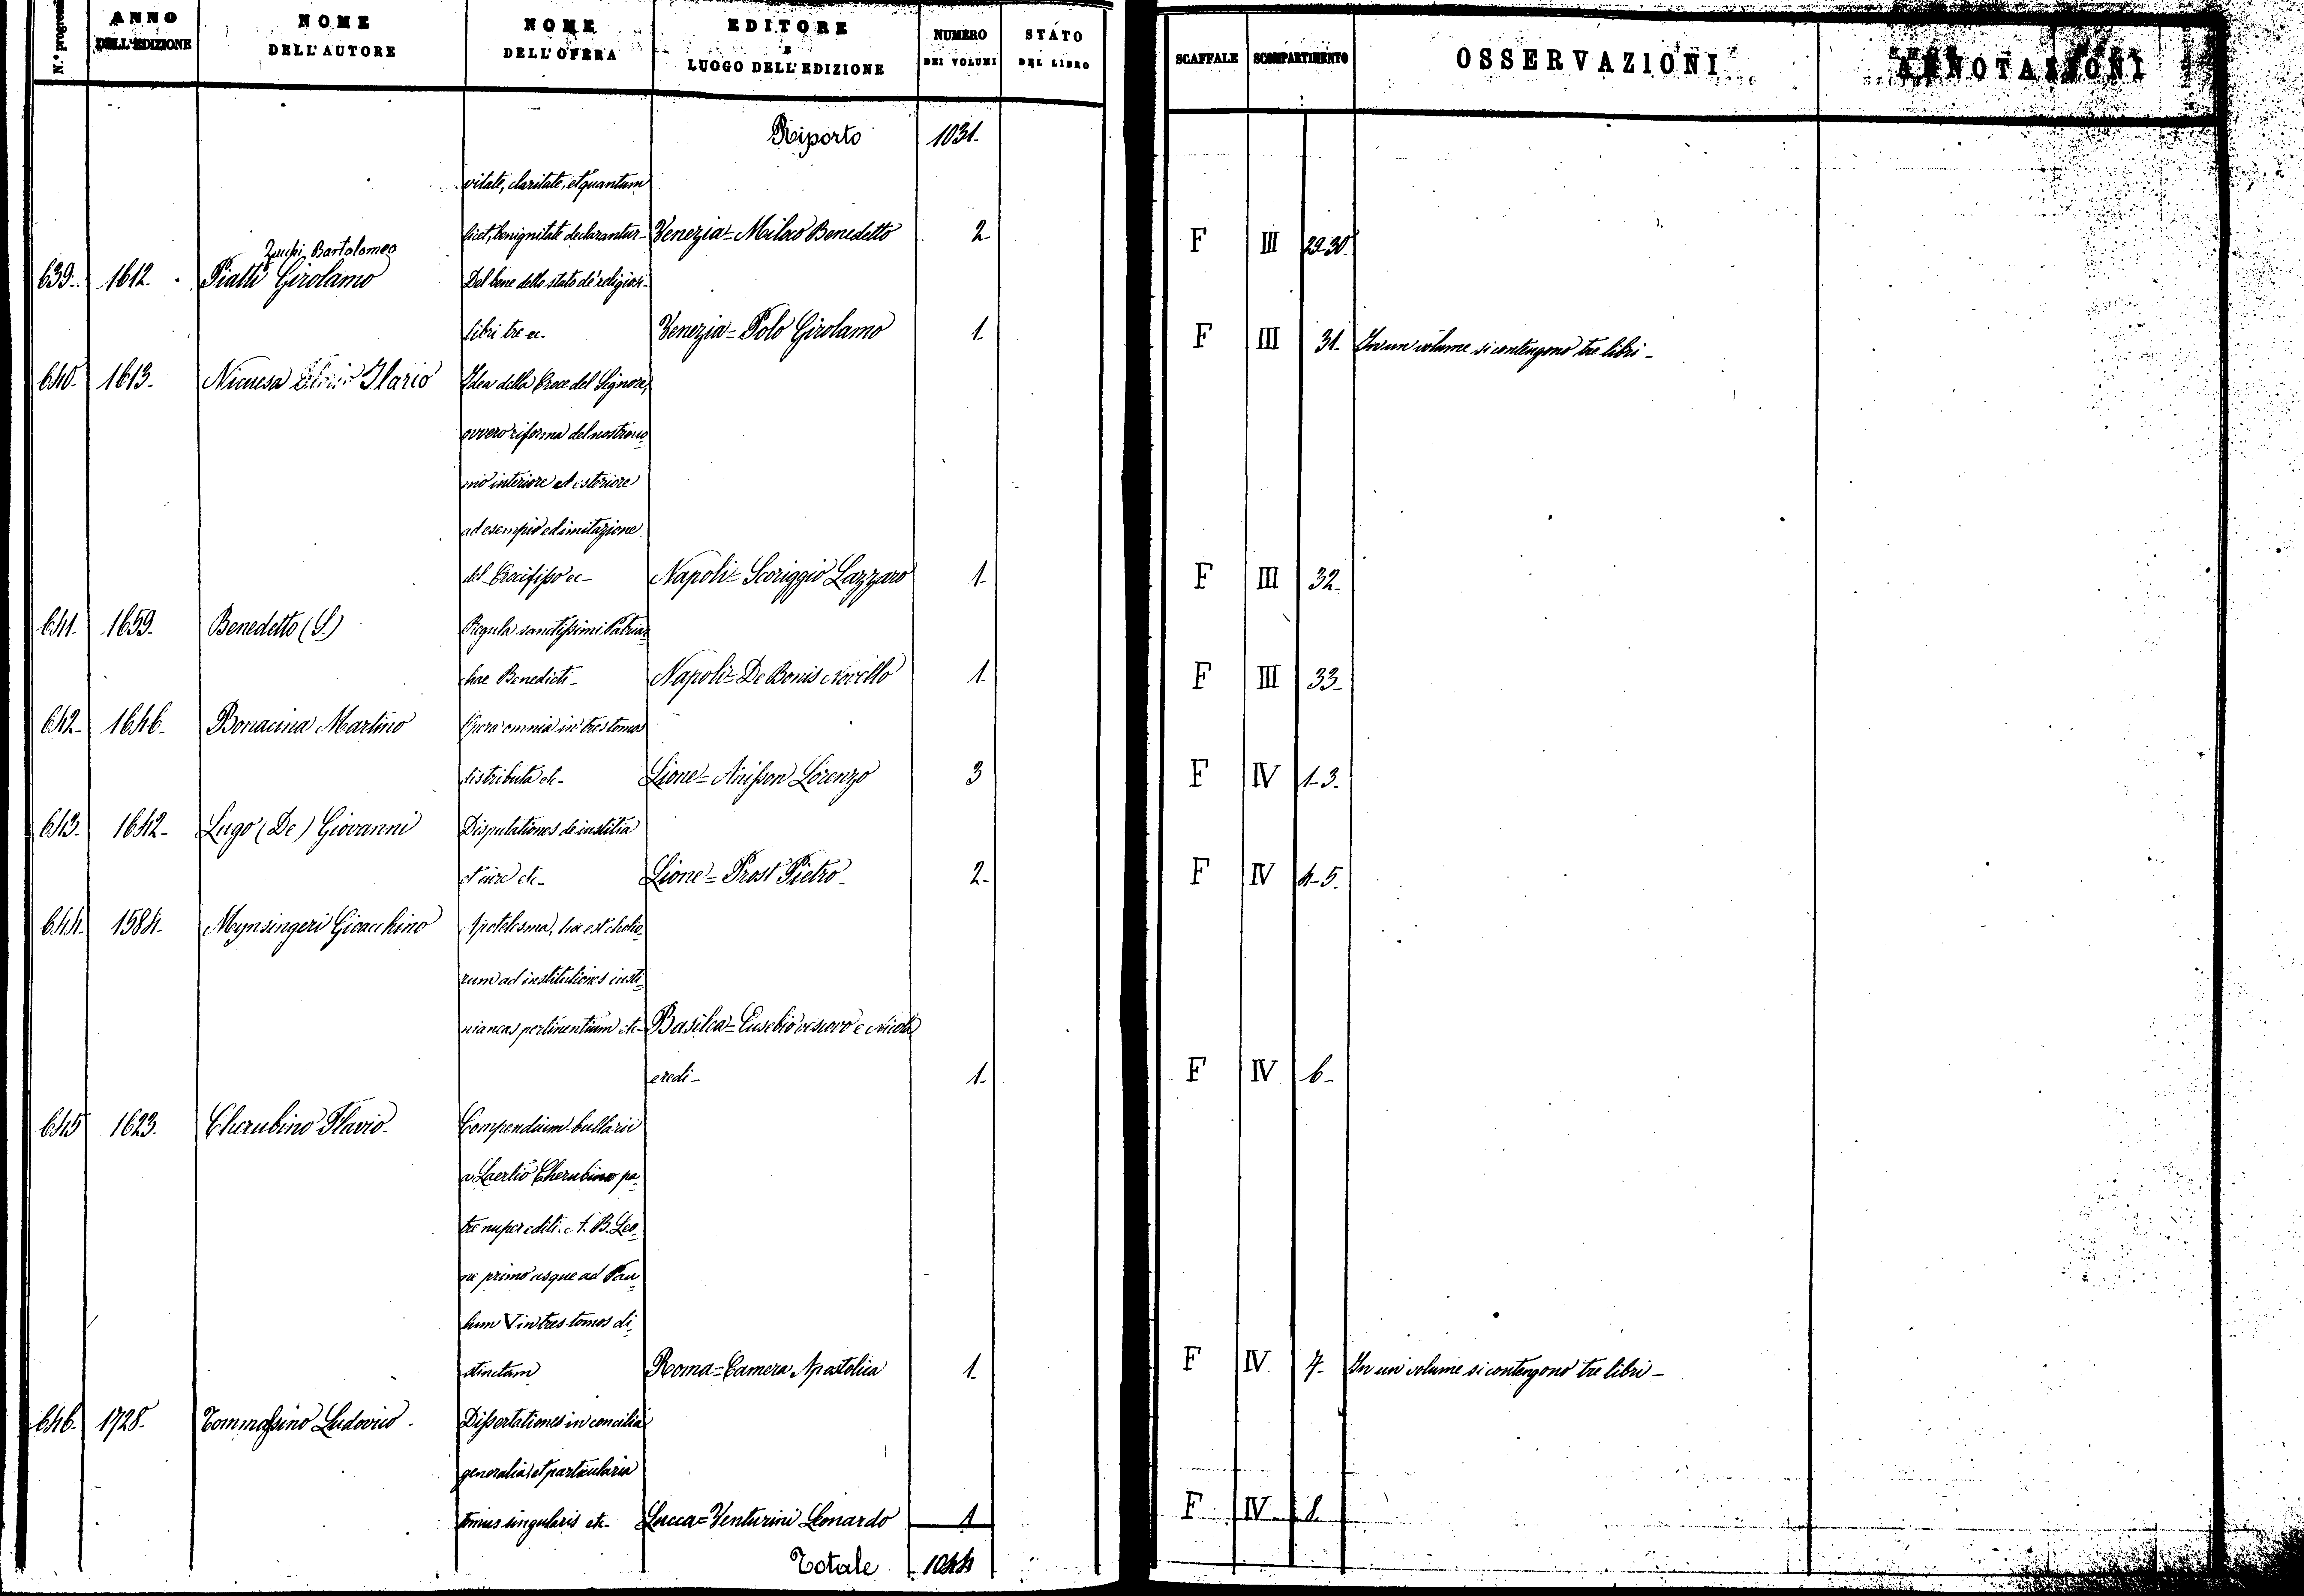 N.° progressi ANNO DELL'EDIZIONE NOME DELL'AUTORE NOME DELL'OPERA EDITORE E LUOGO DELL'EDIZIONE NUMERO DEI VOLUMI STATO DEL LIBRO SCAFFALE SCOMPARTIMENTO OSSERVAZIONI ANNOTAZIONI
Riporto 1031.
vitate, claritate, et quantum
licet, benignitate declarantur- Venezia= Milao Benedetto 2- F III 29-30.
Zucchi Bartolomeo
639.- 1612. Piatti Girolamo Del bene dello stato de' religiosi-
libri tre ec- Venezia= Polo Girolamo 1. F III 31. In un volume si contengono tre libri-
640. 1613. Nicuesa Ilario Idea della Croce del Signore,
ovvero riforma del nostro uo=
mo interiore ed esteriore
ad esempio ed imitazione
del Crocifisso ec- Napoli= Scoriggio Lazzaro 1. F III 32.
641. 1659. Benedetto (S.) Regula sanctissimi Patriar=
chae Benedicti- Napoli= De Bonis Novello 1. F III 33-
642- 1646- Bonacina Martino Opera omnia in tres tomos
distributa etc- Lione= Anisson Lorenzo 3 F IV 1-3.
643. 1642- Lugo (De) Giovanni Disputationes de iustitia
et iure etc- Lione= Prost Pietro- 2- F IV 4-5.
644. 1584. Mynsingeri Gioacchino Apotelesma, hoc est scholio=
rum ad institutiones iusti=
nianeas pertinentium etc- Basilea= Eusebio vescovo e Nicola
eredi- 1. F IV 6-
645 1623. Cherubino Flavio- Compendium bullarii
a Laertio Cherubino pa=
tre nuper editi. A. B. Leo=
ne primo usque ad Pau=
lum V in tres tomos di=
stinctum Roma= Camera Apostolica 1. F IV 7- In un volume si contengono tre libri-
646. 1728- Tommasino Ludovico. Dissertationes in concilia
generalia, et particularia
tomus singularis etc- Lucca= Venturini Leonardo 1 F IV 8.
Totale 1044